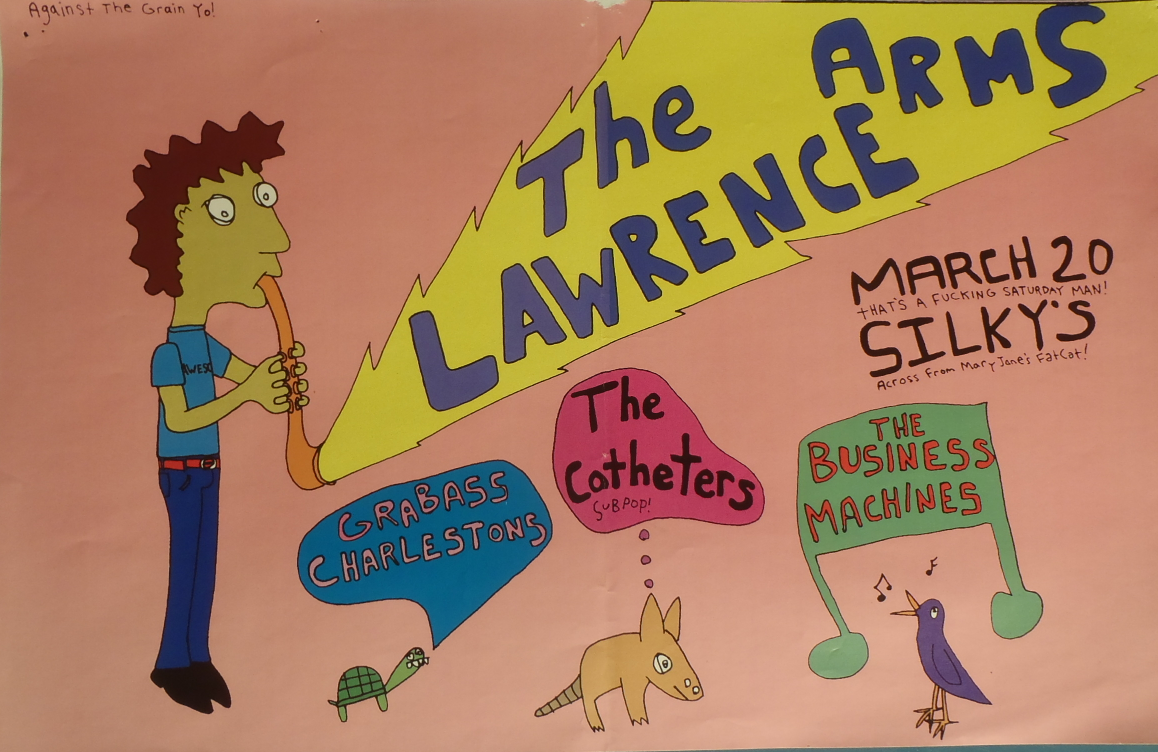 Against The Grain Yo!
The
LAWRENCE
ARMS
MARCH 20
THAT'S A FUCKING SATURDAY MAN!
SILKY'S
Across From Mary Jane's FatCat!
AWESO
GRABASS
CHARLESTONS
The
Catheters
SUBPOP!
THE
BUSINESS
MACHINES